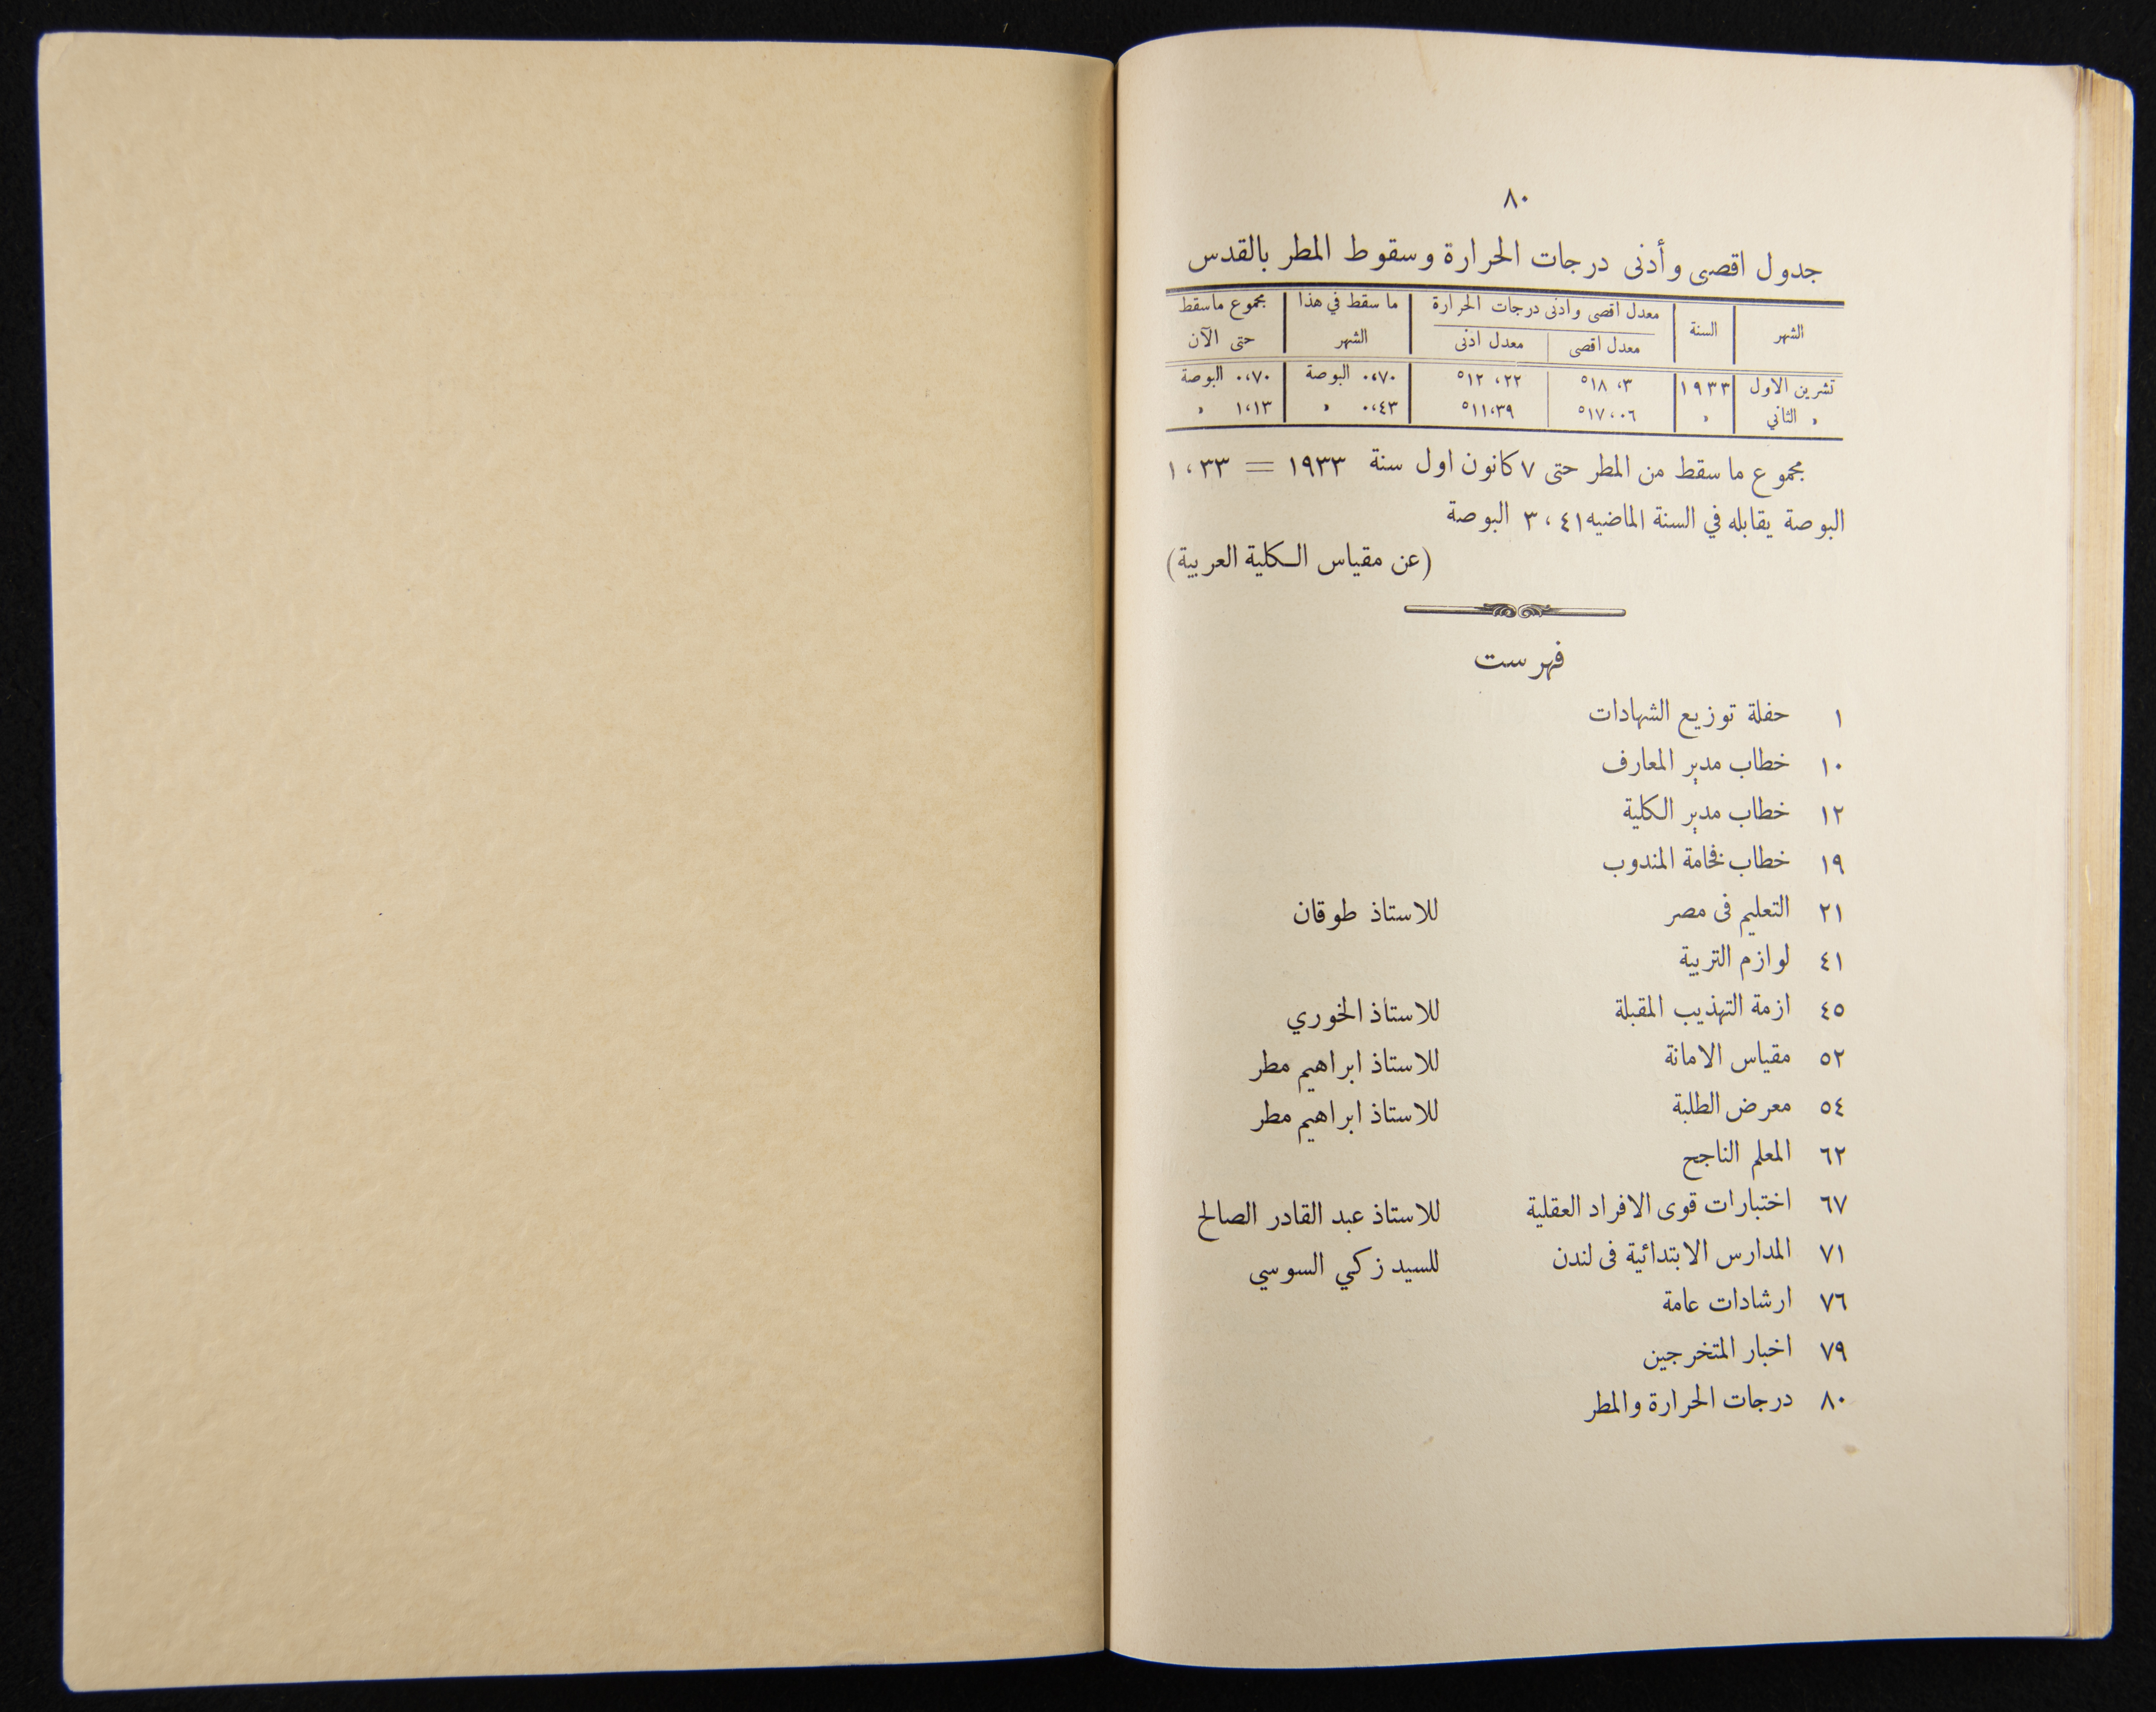 ٨٠
جدول اقصى وأدنى درجات الحرارة وسقوط المطر بالقدس
الشهر السنة معدل اقصى وادنى درجات الحرارة ما سقط في هذا الشهر مجموع ماسقط حتى الآن
معدل اقصى معدل ادنى
تشرين الاول ١٩٣٣ ٣، ١٨° ٢٢، ١٢° ٠،٧٠ البوصة ٠،٧٠ البوصة
» الثاني » ٠٦،١٧° ٣٩،١١° ٠،٤٣ » ١،١٣ »
مجموع ما سقط من المطر حتى ٧ كانون اول سنة ١٩٣٣ = ١،٣٣
البوصة يقابله في السنة الماضيه ٣،٤١ البوصة
(عن مقياس الكلية العربية)
فهرست
١ حفلة توزيع الشهادات
١٠ خطاب مدير المعارف
١٢ خطاب مدير الكلية
١٩ خطاب فخامة المندوب
٢١ التعليم فى مصر للاستاذ طوقان
٤١ لوازم التربية
٤٥ ازمة التهذيب المقبلة للاستاذ الخوري
٥٢ مقياس الامانة للاستاذ ابراهيم مطر
٥٤ معرض الطلبة للاستاذ ابراهيم مطر
٦٢ المعلم الناجح
٦٧ اختبارات قوى الافراد العقلية للاستاذ عبد القادر الصالح
٧١ المدارس الابتدائية فى لندن للسيد زكي السوسي
٧٦ ارشادات عامة
٧٩ اخبار المتخرجين
٨٠ درجات الحرارة والمطر